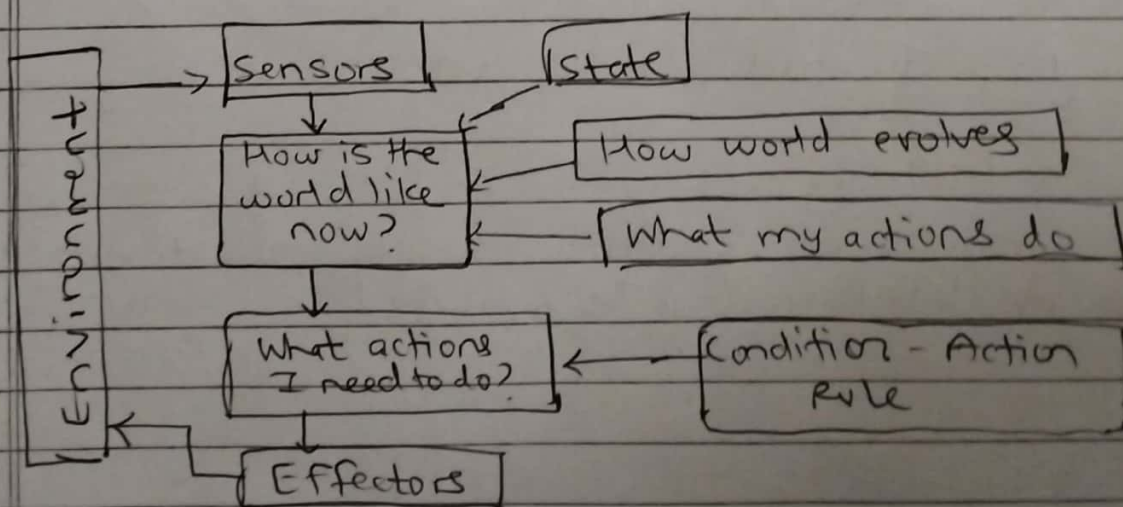 Sensors
State
Environment
How is the
world like
now?
How world evolves
What my actions do
What actions
I need to do?
Condition - Action
Rule
Effectors